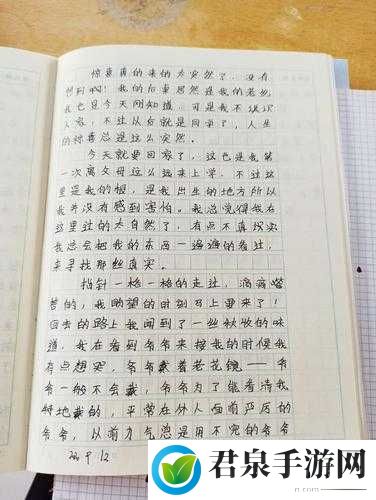 惊喜真的来的太突然了，没有
想到啊！我的后事居然是我的老
我也是今天刚知道，可是我不认识
人家，不过从后就是同学了，人生
的惊喜总是这么突然。
今天就要回家了，这也是我第
一次离父母这么远来上学，不过这
里是我的根，是我出生的地方所以
我并没有感到害怕。我总觉得我在
这里过的太自然了，有点不真实
我总会把我的东西一遍遍的看过，
来寻找那丝真实。
指针一格一格的走过，滴滴嗒
嗒的，我盼望的时刻马上要来了！
回去的路上我闻到了一丝秋收的味
道，我在看到爷爷来接我的时候我
有点想哭，爷爷戴着老花镜——爷
爷一般不会戴，爷爷为了能看清我
特地戴的，平常在外人面前严厉的
爷爷，以前力气总是用不完的爷爷
君泉手游网